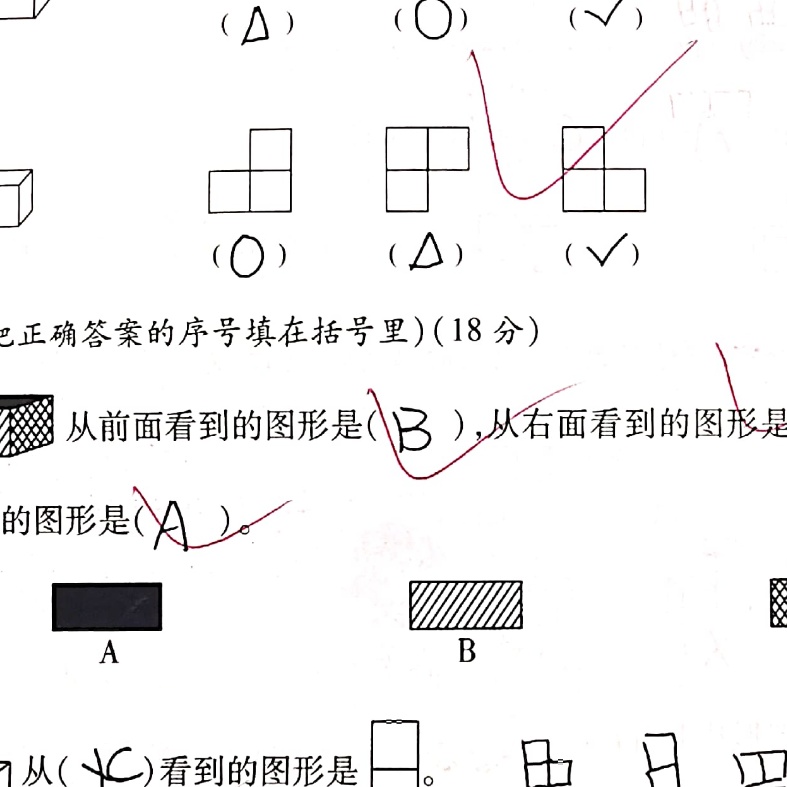 (△) (○) (✓)
(○) (△) (✓)
把正确答案的序号填在括号里)(18分)
从前面看到的图形是(B),从右面看到的图形是
的图形是(A)。
A B
从( )看到的图形是 。